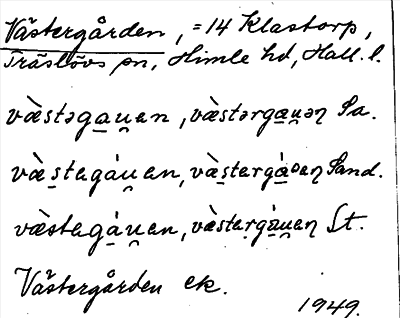 Västergården, = 14 Klastorp,
Träslövs sn, Himle hd, Hall. l.
væ̀stəga̱u̯en, væ̀stərgæu̯əɳ Sa.
væ̀s̱tegá̱u̯en, væ̀s̱tergà̱oeɳ Sand.
væ̀stegá̱u̯en, væ̀steṛgá̱u̯eɳ St.
Västergården ek.
1949.